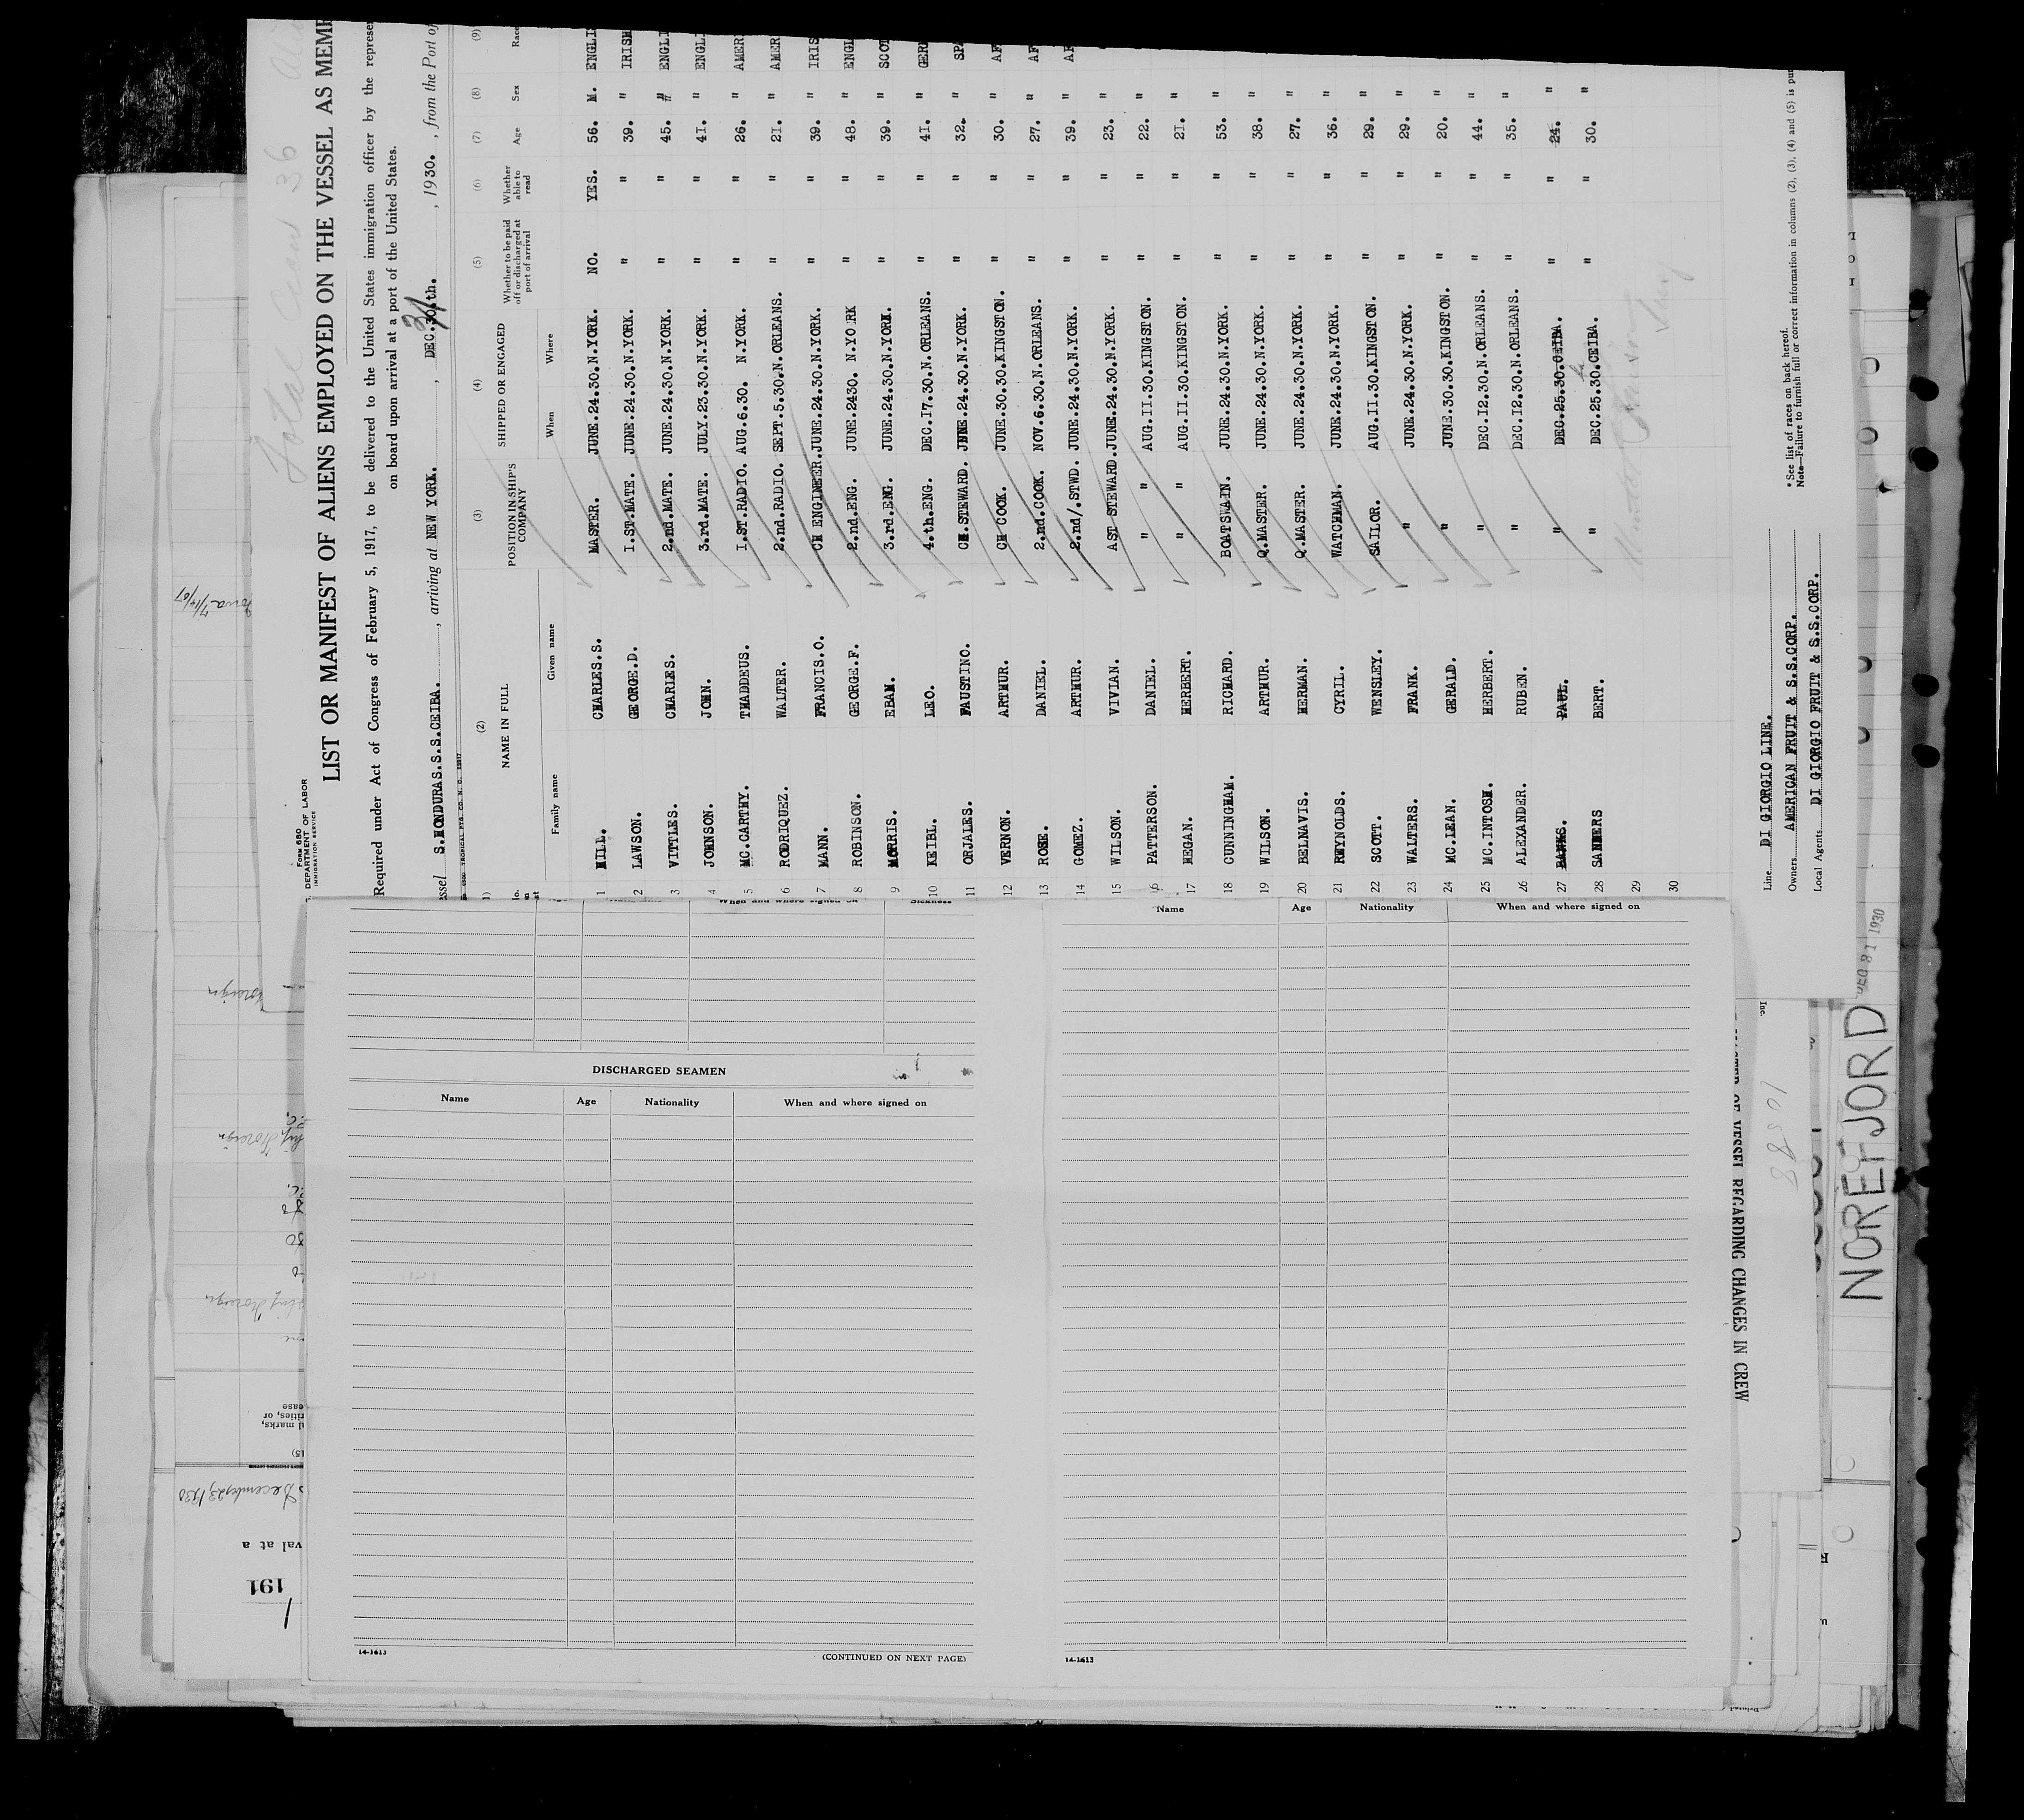 Total Crew 36
Form 680
DEPARTMENT OF LABOR
IMMIGRATION SERVICE
LIST OR MANIFEST OF ALIENS EMPLOYED ON THE VESSEL AS MEMB
Required under Act of Congress of February 5, 1917, to be delivered to the United States immigration officer by the represe
on board upon arrival at a port of the United States.
essel S.HONDURAS.S.S.CEIBA. , arriving at NEW YORK. , DEC.30.th. 31 , 1930. , from the Port of
(2) (3) (4) (5) (6) (7) (8) (9)
NAME IN FULL POSITION IN SHIP'S COMPANY SHIPPED OR ENGAGED Whether to be paid off or discharged at port of arrival Whether able to read Age Sex Race
Family name Given name When Where
1 HILL. CHARLES.S. MASTER. JUNE.24.30.N.YORK. NO. YES. 56. M. ENGLI
2 LAWSON. GEORGE.D. I.ST.MATE. JUNE.24.30.N.YORK. " " 39. " IRISH
3 VITTLES. CHARLES. 2.nd.MATE. JUNE.24.30.N.YORK. " " 45. " ENGLI
4 JOHNSON. JOHN. 3.rd.MATE. JULY.23.30.N.YORK. " " 4I. " ENGL
5 MC.CARTHY. THADDEUS. I.ST.RADIO. AUG.6.30. N.YORK. " " 26. " AMER
6 RODRIQUEZ. WALTER. 2.nd.RADIO. SEPT.5.30.N.ORLEANS. " " 2I. " AMER
7 MANN. FRANCIS.O. CH ENGINEER. JUNE.24.30.N.YORK. " " 39. " IRIS
8 ROBINSON. GEORGE.F. 2.nd.ENG. JUNE.2430. N.YORK " " 48. " ENGL
9 MORRIS. EBAM. 3.rd.ENG. JUNE.24.30.N.YORK. " " 39. " SCOT
10 KEIBL. LEO. 4.th.ENG. DEC.I7.30.N.ORLEANS. " " 4I. " GER
11 ORJALES. FAUSTINO. CH.STEWARD. JUNE.24.30.N.YORK. " " 32. " SPA
12 VERNON. ARTHUR. CH COOK. JUNE.30.30.KINGSTON. " " 30. " AF
13 ROSE. DANIEL. 2.nd.COOK. NOV.6.30.N.ORLEANS. " " 27. " AF
14 GOMEZ. ARTHUR. 2.nd/.STWD. JUNE.24.30.N.YORK. " " 39. " AF
15 WILSON. VIVIAN. AST STEWARD. JUNE.24.30.N.YORK. " " 23. "
16 PATTERSON. DANIEL. " AUG.II.30.KINGSTON. " " 22. "
17 HEGAN. HERBERT. " AUG.II.30.KINGSTON. " " 2I. "
18 CUNNINGHAM. RICHARD. BOATSWAIN. JUNE.24.30.N.YORK. " " 53. "
19 WILSON. ARTHUR. Q.MASTER. JUNE.24.30.N.YORK. " " 38. "
20 BELNAVIS. HERMAN. Q.MASTER. JUNE.24.30.N.YORK. " " 27. "
21 REYNOLDS. CYRIL. WATCHMAN. JUNE.24.30.N.YORK. " " 36. "
22 SCOTT. WENSLEY. SAILOR. AUG.II.30.KINGSTON. " " 29. "
23 WALTERS. FRANK. " JUNE.24.30.N.YORK. " " 29. "
24 MC.LEAN. GERALD. " JUNE.30.30.KINGSTON. " " 20. "
25 MC.INTOSH. HERBERT. " DEC.I2.30.N.ORLEANS. " " 44. "
26 ALEXANDER. RUBEN. " DEC.I2.30.N.ORLEANS. " " 35. "
27 BANKS. PAUL. " DEC.25.30.CEIBA. " " 24. "
28 SANDERS BERT. " DEC.25.30.CEIBA. " " 30. "
29
30
Line DI GIORGIO LINE.
Owners AMERICAN FRUIT & S.S.CORP.
Local Agents DI GIORGIO FRUIT & S.S.CORP.
* See list of races on back hereof.
Note—Failure to furnish full or correct information in columns (2), (3), (4) and (5) is pu
When and where signed on Sickness
DISCHARGED SEAMEN
Name Age Nationality When and where signed on
14-1613
(CONTINUED ON NEXT PAGE)
Name Age Nationality When and where signed on
14-1613
OF VESSEL REGARDING CHANGES IN CREW
Inc.
NOREFJORD
DEC 31 1930
foreign
December 23/930
val at a
191